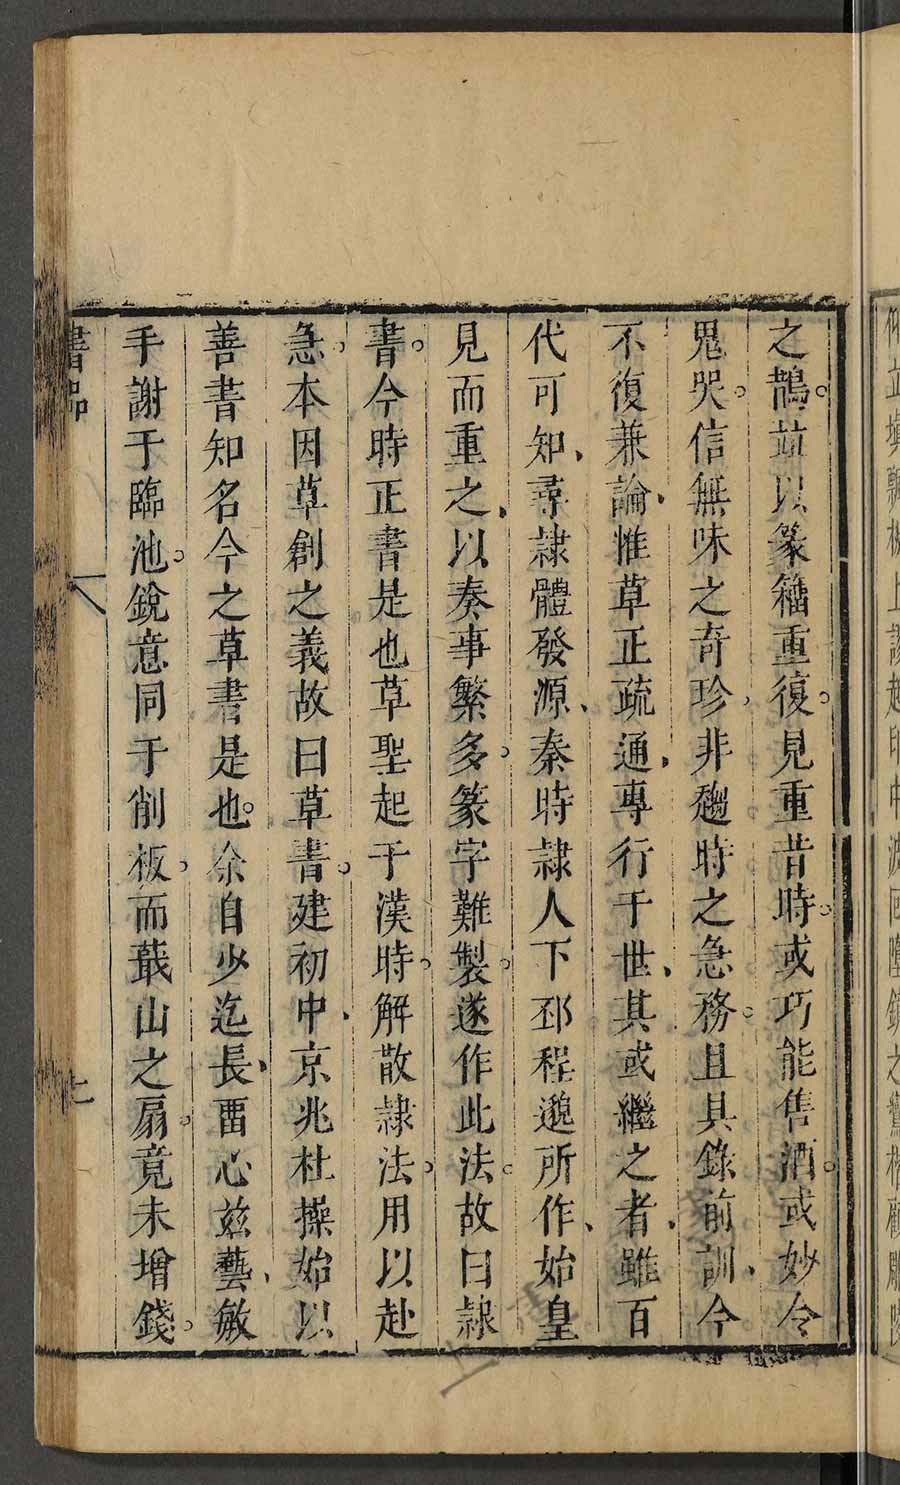 之鵲。竝以篆籀重復。見重昔時。或巧能售酒。或妙令
鬼哭。信無味之奇珍、非趨時之急務。且具錄前訓、今
不復兼論、惟草正疏通、專行于世、其或繼之者、雖百
代可知、尋隷體發源、秦時隷人下邳程邈所作、始皇
見而重之、以奏事繁多。篆字難製。遂作此法。故曰隷
書。今時正書是也草聖起于漢時。解散隷法。用以赴
急、本因草創之義故曰草書。建初中、京兆杜操始以
善書知名今之草書是也。余自少迄長、畱心兹藝、敏
手謝于臨池。銳意同于削板。而蕺山之扇。竟未增錢。
書品